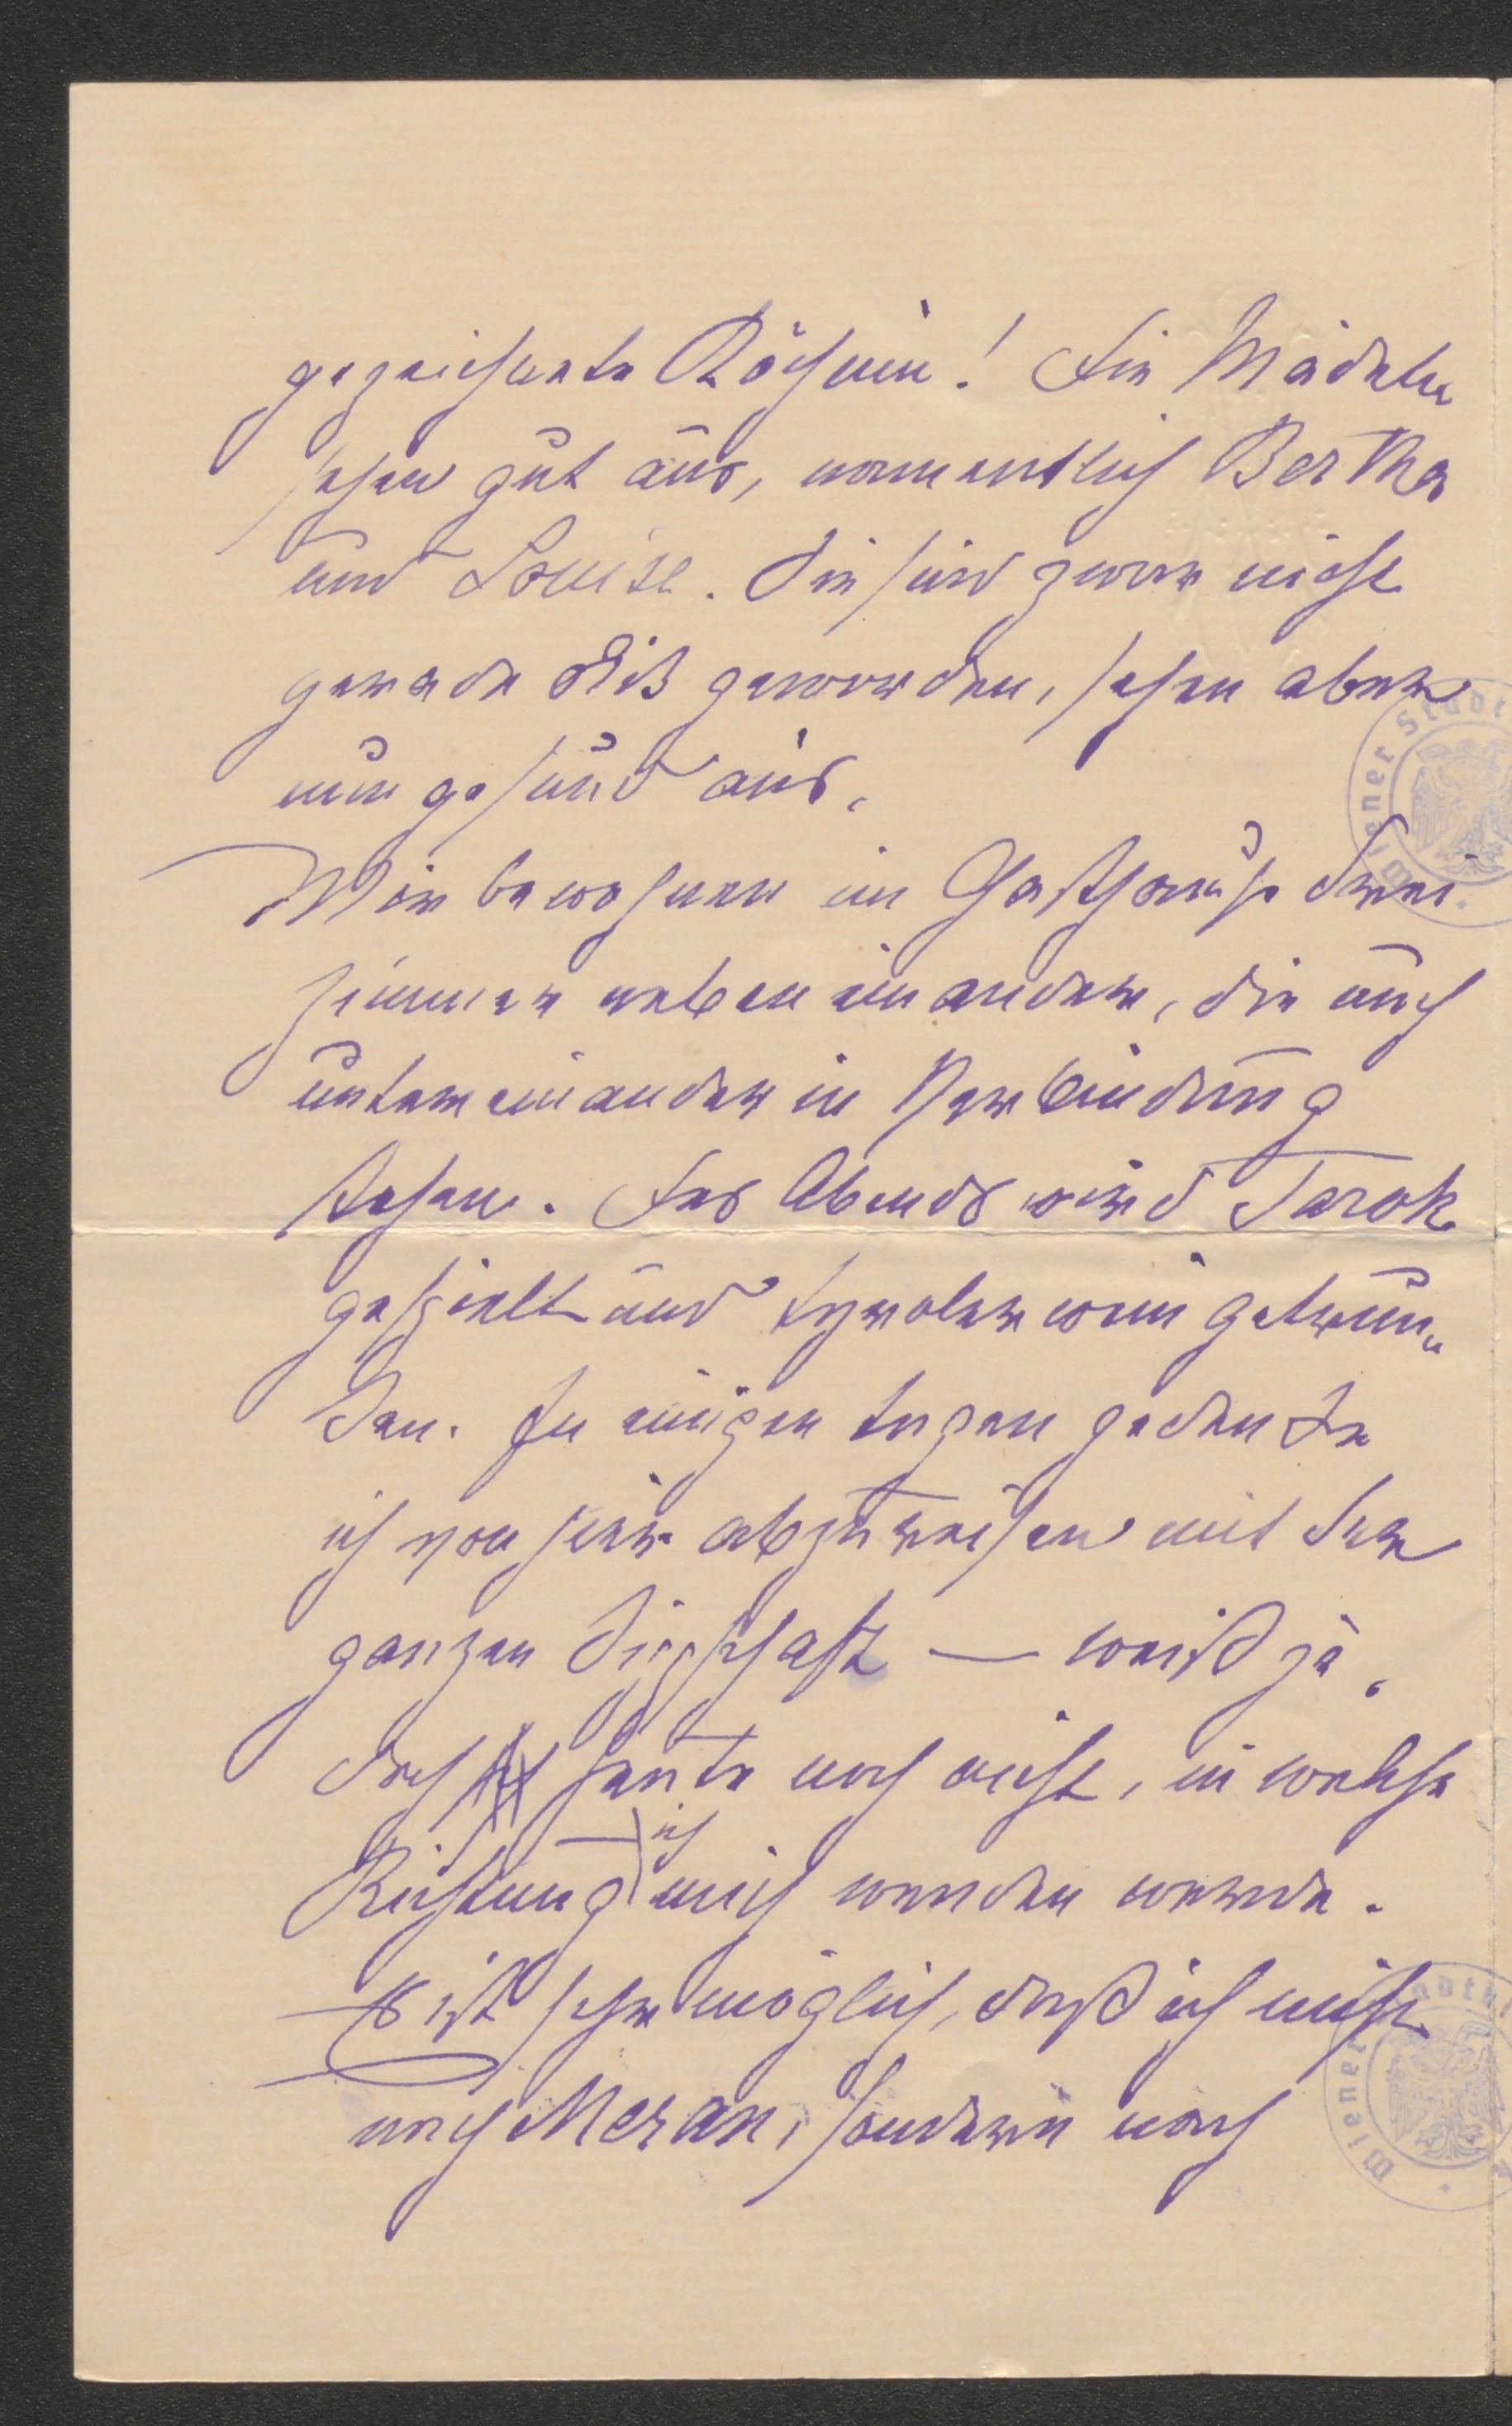 gezeichnete Köchin! Die Mädeln
sehen gut aus, namentlich Bertha
und Louise. Sie sind zwar nicht
gerade dick geworden, sehen aber
nun gesund aus.
Wir bewohnen im Gasthause drei
Zimmer neben einander, die auch
untereinander in Verbindung
stehen. Des Abends wird Tarok
gespielt und Tyrolerwein getrun„
ken. In einigen Tagen gedenke
ich von hier abzureisen mit der
ganzen Sippschaft — weiß je„
doch heute noch nicht, in welche
Richtung ich mich wenden werde.
Es ist sehr möglich, daß ich nicht
nach Meran, sondern nach
Wiener Stadt
Wiener Stadt